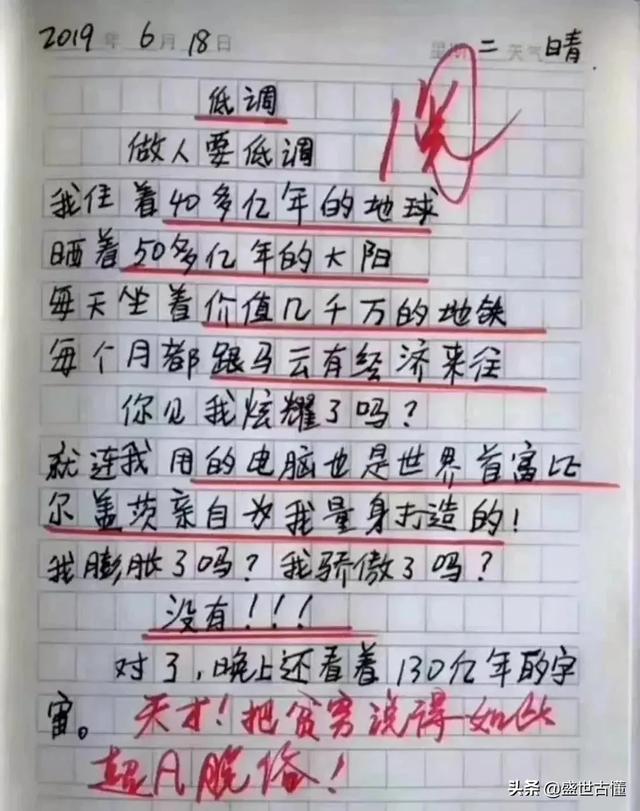 2019年6月18日 星期二 天气晴
阅
低调
做人要低调
我住着40多亿年的地球
晒着50多亿年的大阳
每天坐着价值几千万的地铁
每个月都跟马云有经济来往
你见我炫耀了吗?
就连我用的电脑也是世界首富比
尔盖茨亲自为我量身打造的!
我膨胀了吗?我骄傲了吗?
没有!!!
对了,晚上还看着130亿年的字
宙。天才!把贫穷说得如此
超凡脱俗!
头条 @盛世古懂